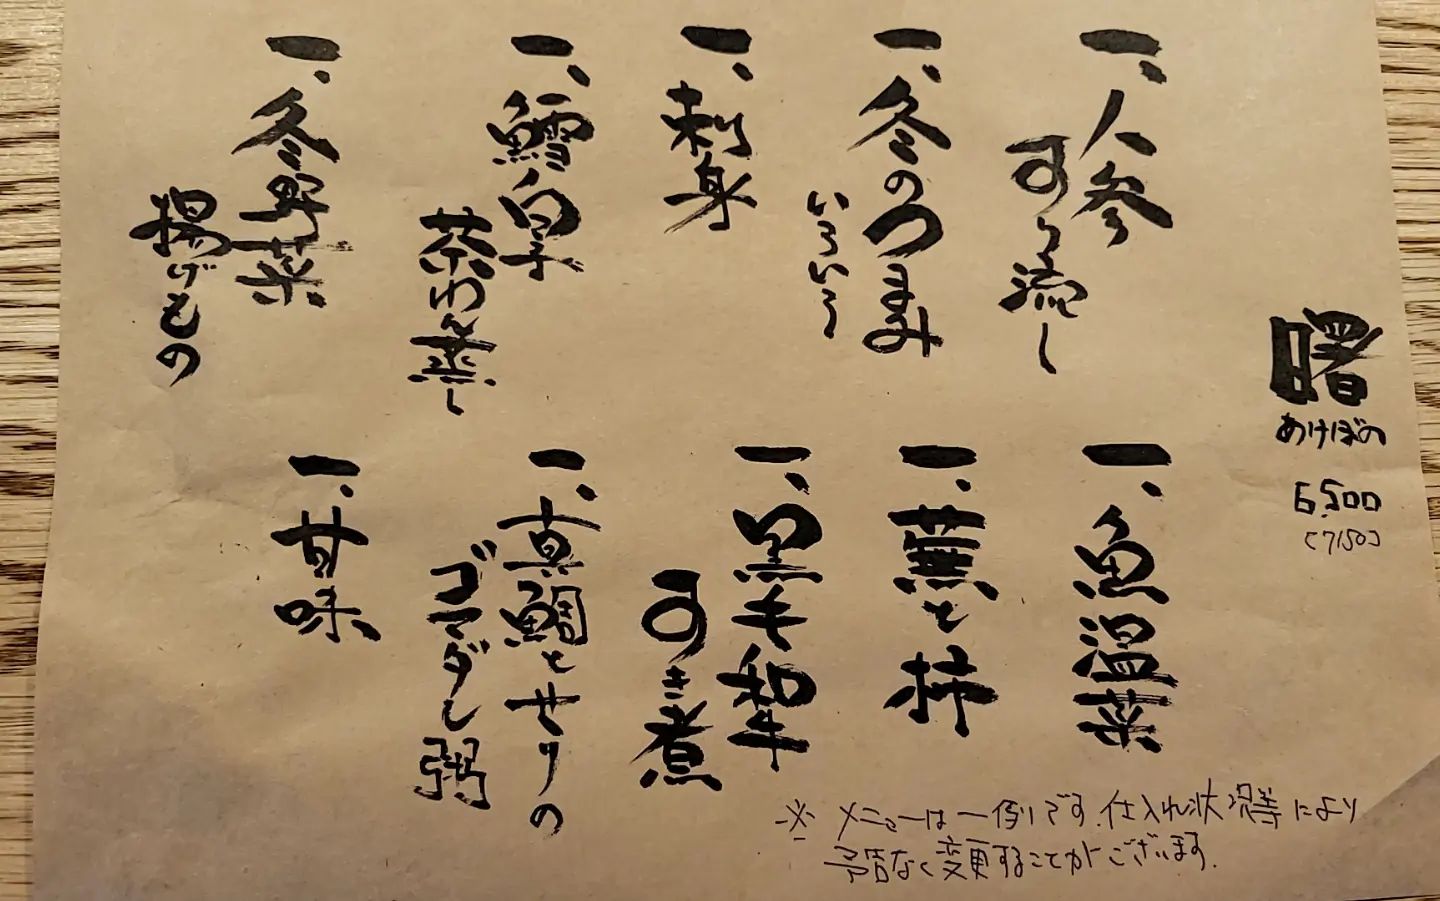 曙
あけぼの
6,500
(7150)
一、人参
すり流し
一、冬のつまみ
いろいろ
一、刺身
一、鱈白子
茶わん蒸し
一、冬野菜
揚げもの
一、魚温菜
一、蕪と柿
一、黒毛和牛
すき煮
一、真鯛とせりの
ゴマダレ粥
一、甘味
※メニューは一例です。仕入れ状況等により
予告なく変更することがございます。